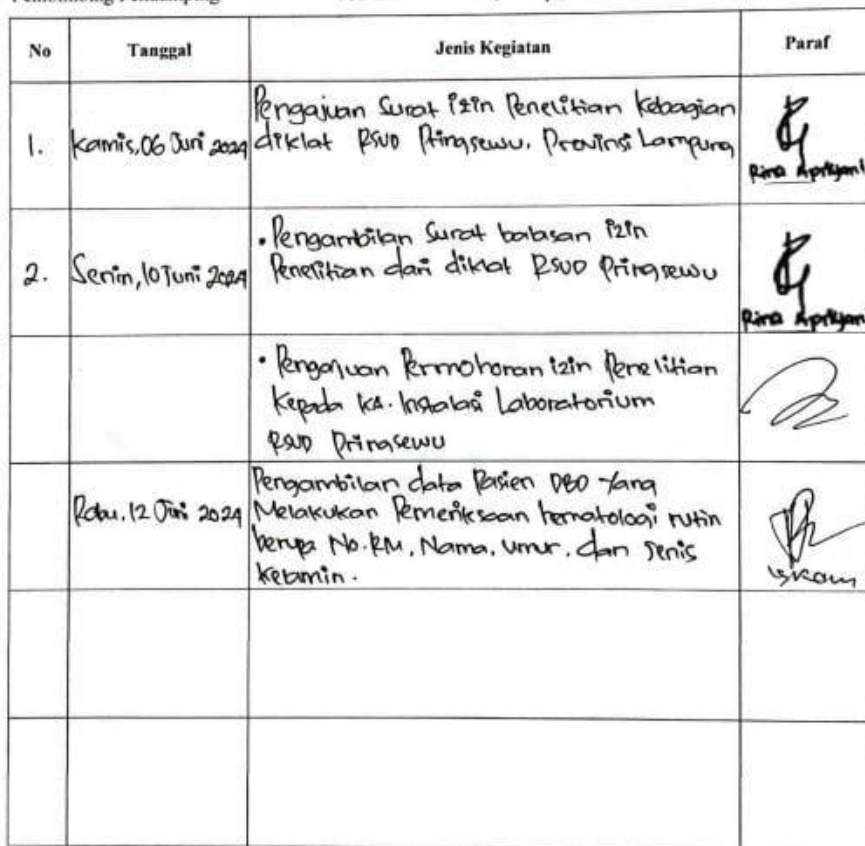 Pembimbing Pendamping
No Tanggal Jenis Kegiatan Paraf
1. Kamis, 06 Juni 2024
Pengajuan Surat izin Penelitian kebagian
diklat RSUD Pringsewu, Provinsi Lampung
Rina Apriyani
2. Senin, 10 Juni 2024
• Pengambilan Surat balasan izin
Penelitian dari diklat RSUD Pringsewu
Rina Apriyani
• Pengajuan Permohonan izin Penelitian
Kepada KA. Instalasi Laboratorium
RSUD Pringsewu
Rabu, 12 Juni 2024
Pengambilan data Pasien DBD yang
Melakukan Pemeriksaan hematologi rutin
berupa No.RM, Nama, umur, dan Jenis
Kelamin.